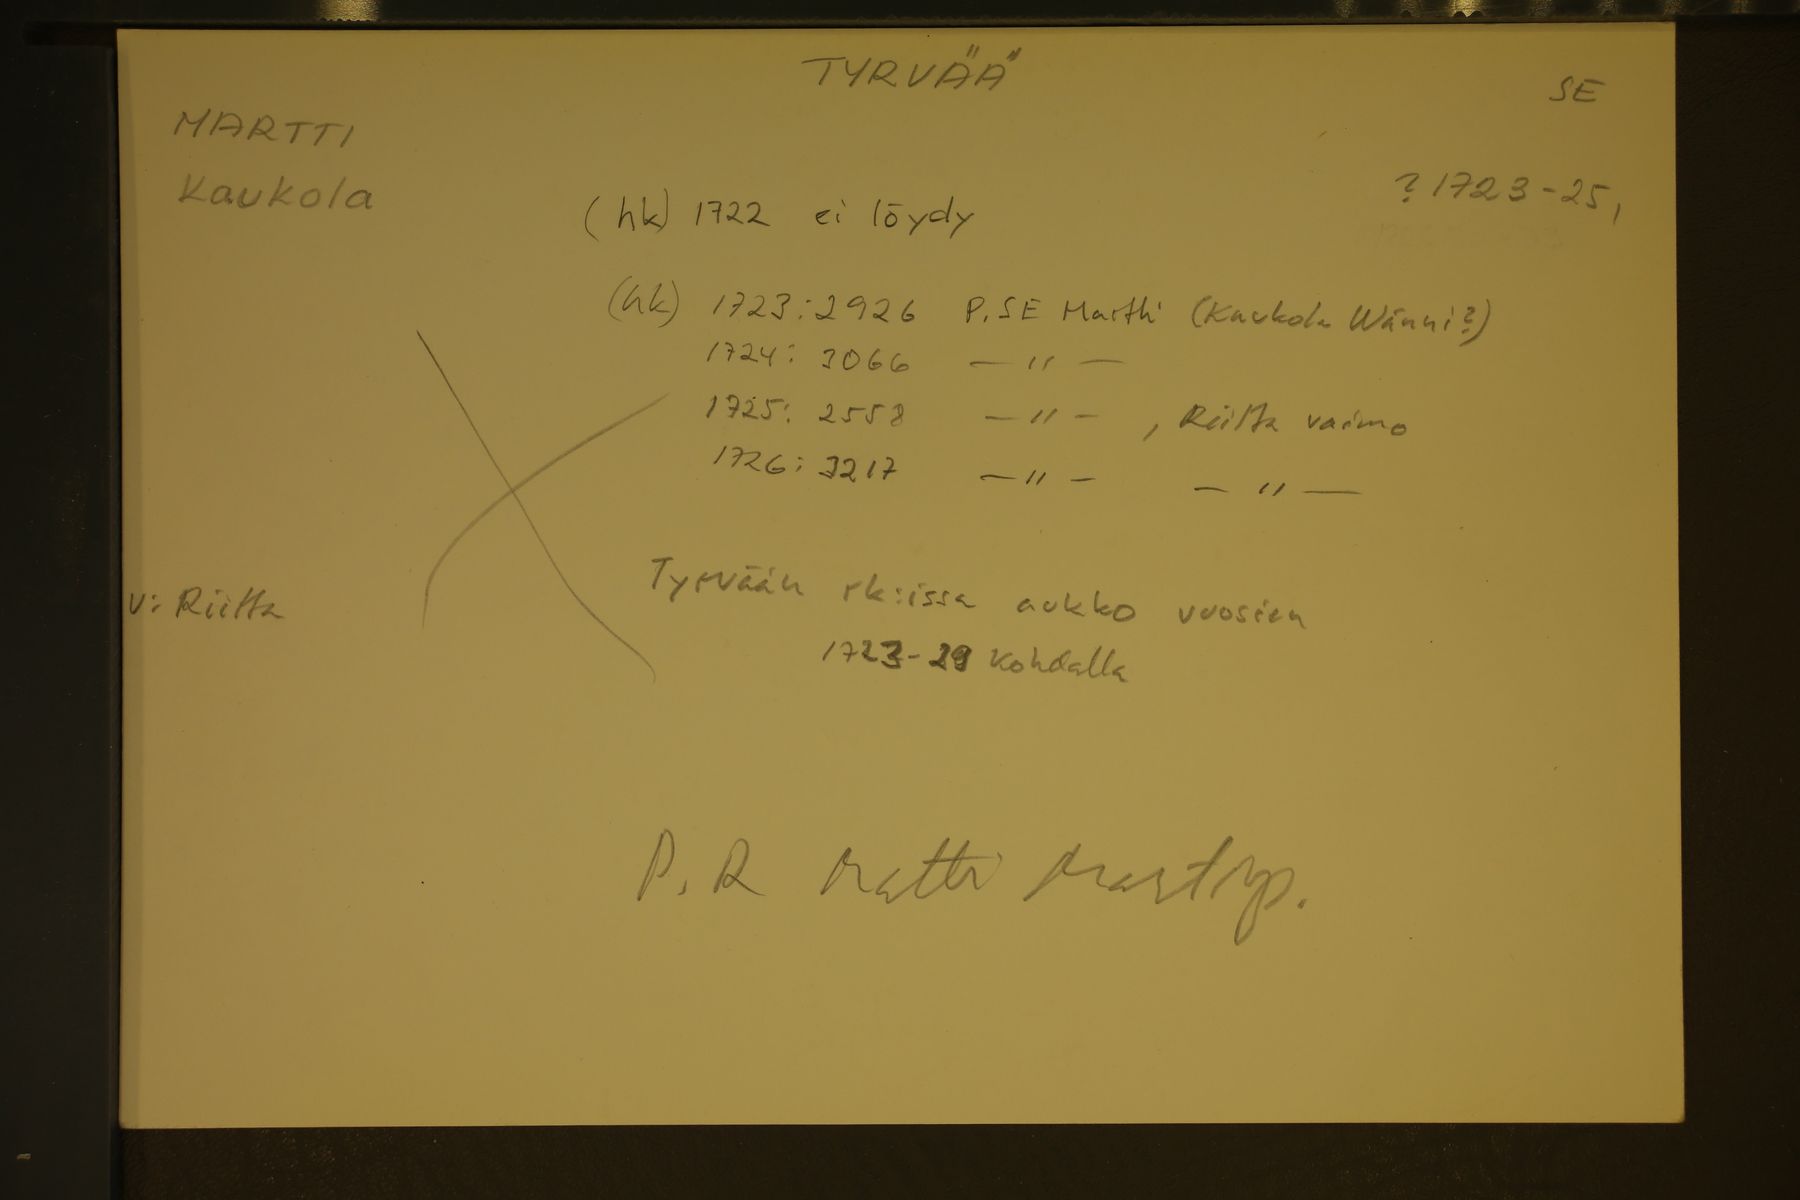 TYRVÄÄ
SE
MARTTI
Kaukola
? 1723-25,
(hk) 1722 ei löydy
(hk) 1723:2926 P.SE Martti (Kaukola Wänni?)
1724: 3066 — " —
1725: 2558 — " — , Riitta vaimo
1726: 3217 — " — — " —
v: Riitta
Tyrvään rk:issa aukko vuosien
1723-29 kohdalla
P.R Matti Martinp.